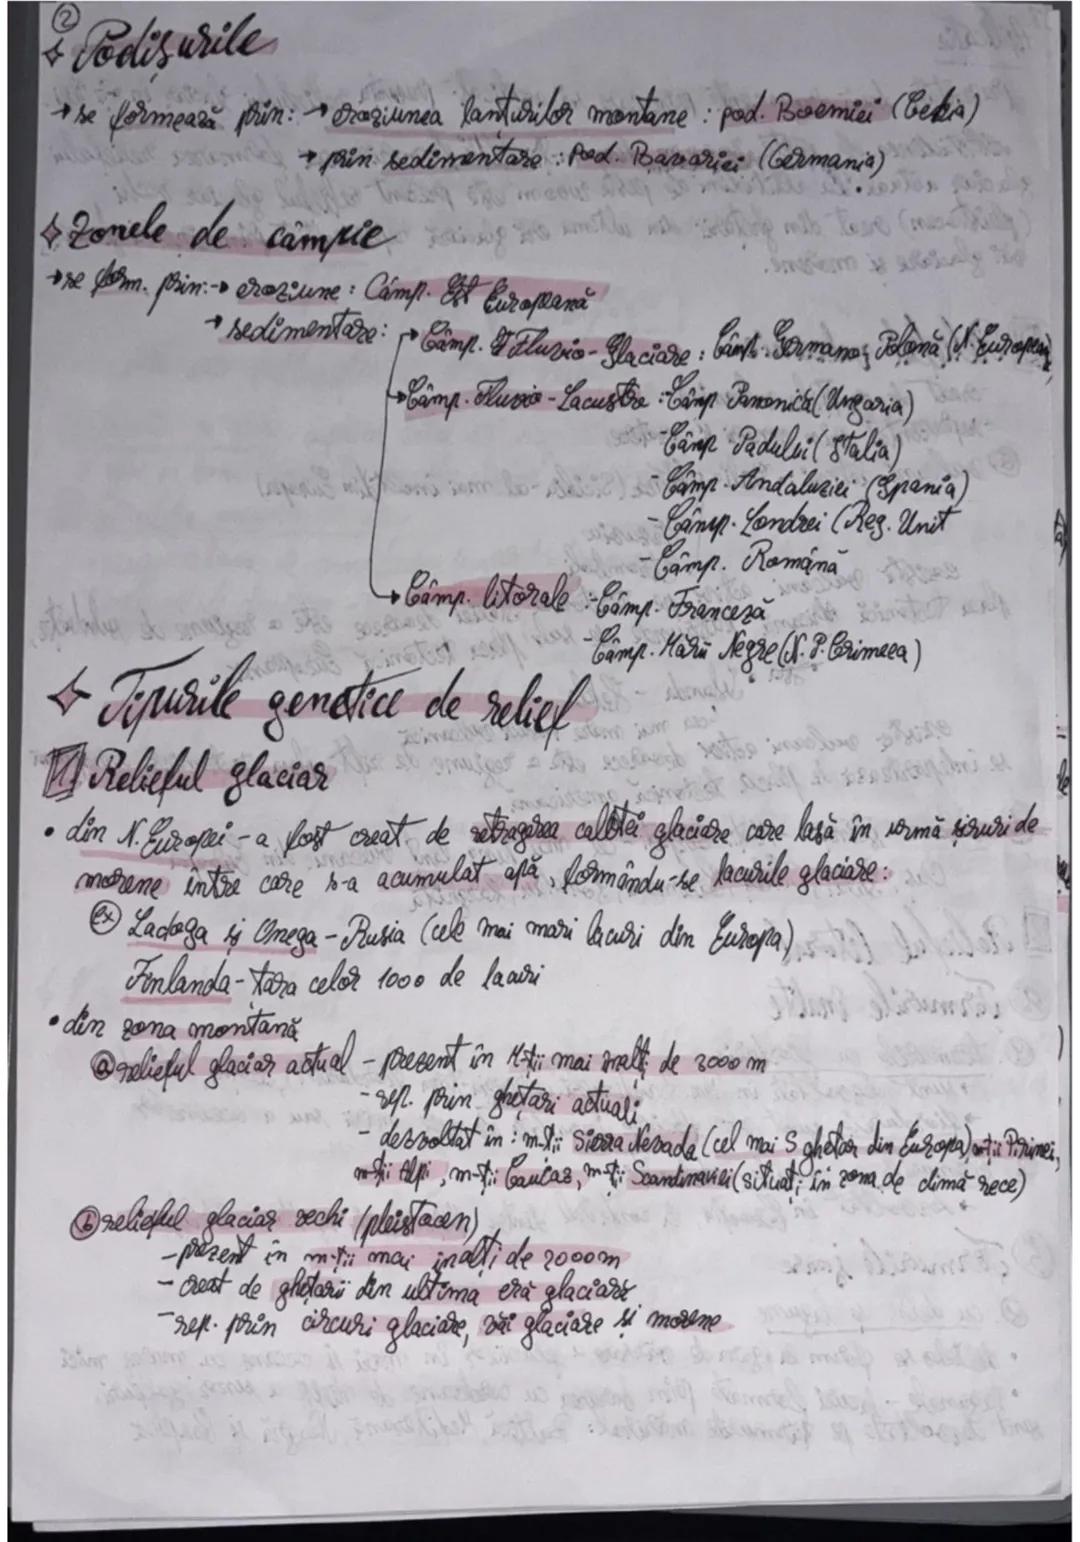 ②
Podișurile
→ se formează prin: → eroziunea lanțurilor montane : pod. Boemiei (Cehia)
→ prin sedimentare : Pod. Bavariei (Germania)
Zonele de câmpie
→ se form. prin: → eroziune : Câmp. Est Europeană
→ sedimentare:
→ Câmp. Fluvio-Glaciare : Câmp. Germano-Polonă (N. Europei)
→ Câmp. Fluvio-Lacustre : - Câmp Panonică (Ungaria)
- Câmp Padului (Italia)
- Câmp. Andaluziei (Spania)
- Câmp. Londrei (Reg. Unit
- Câmp. Română
→ Câmp. litorale : - Câmp. Franceză
- Câmp. Mării Negre (N. P. Crimeea)
Tipurile genetice de relief
1 Relieful glaciar
• din N. Europei - a fost creat de retragerea calotei glaciare care lasă în urmă șiruri de
morene între care s-a acumulat apă, formându-se lacurile glaciare:
ex Ladoga și Onega - Rusia (cele mai mari lacuri din Europa)
Finlanda - țara celor 1000 de lacuri
• din zona montană
a relieful glaciar actual - prezent în M-ții mai înalți de 3000 m
- rep. prin ghețari actuali
- dezvoltat în : m-ții Sierra Nevada (cel mai S ghețar din Europa), m-ții Pirinei,
m-ții Alpi, m-ții Caucaz, m-ții Scandinaviei (situați în zona de climă rece)
b relieful glaciar vechi (pleistocen)
- prezent în m-ții mai înalți de 2000m
- creat de ghețarii din ultima eră glaciară
- rep. prin circuri glaciare, văi glaciare și morene